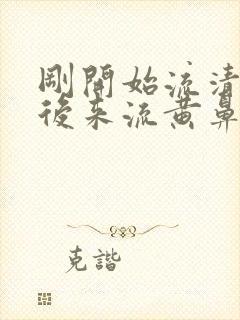 剛開始流清
後來流黃鼻
克諧